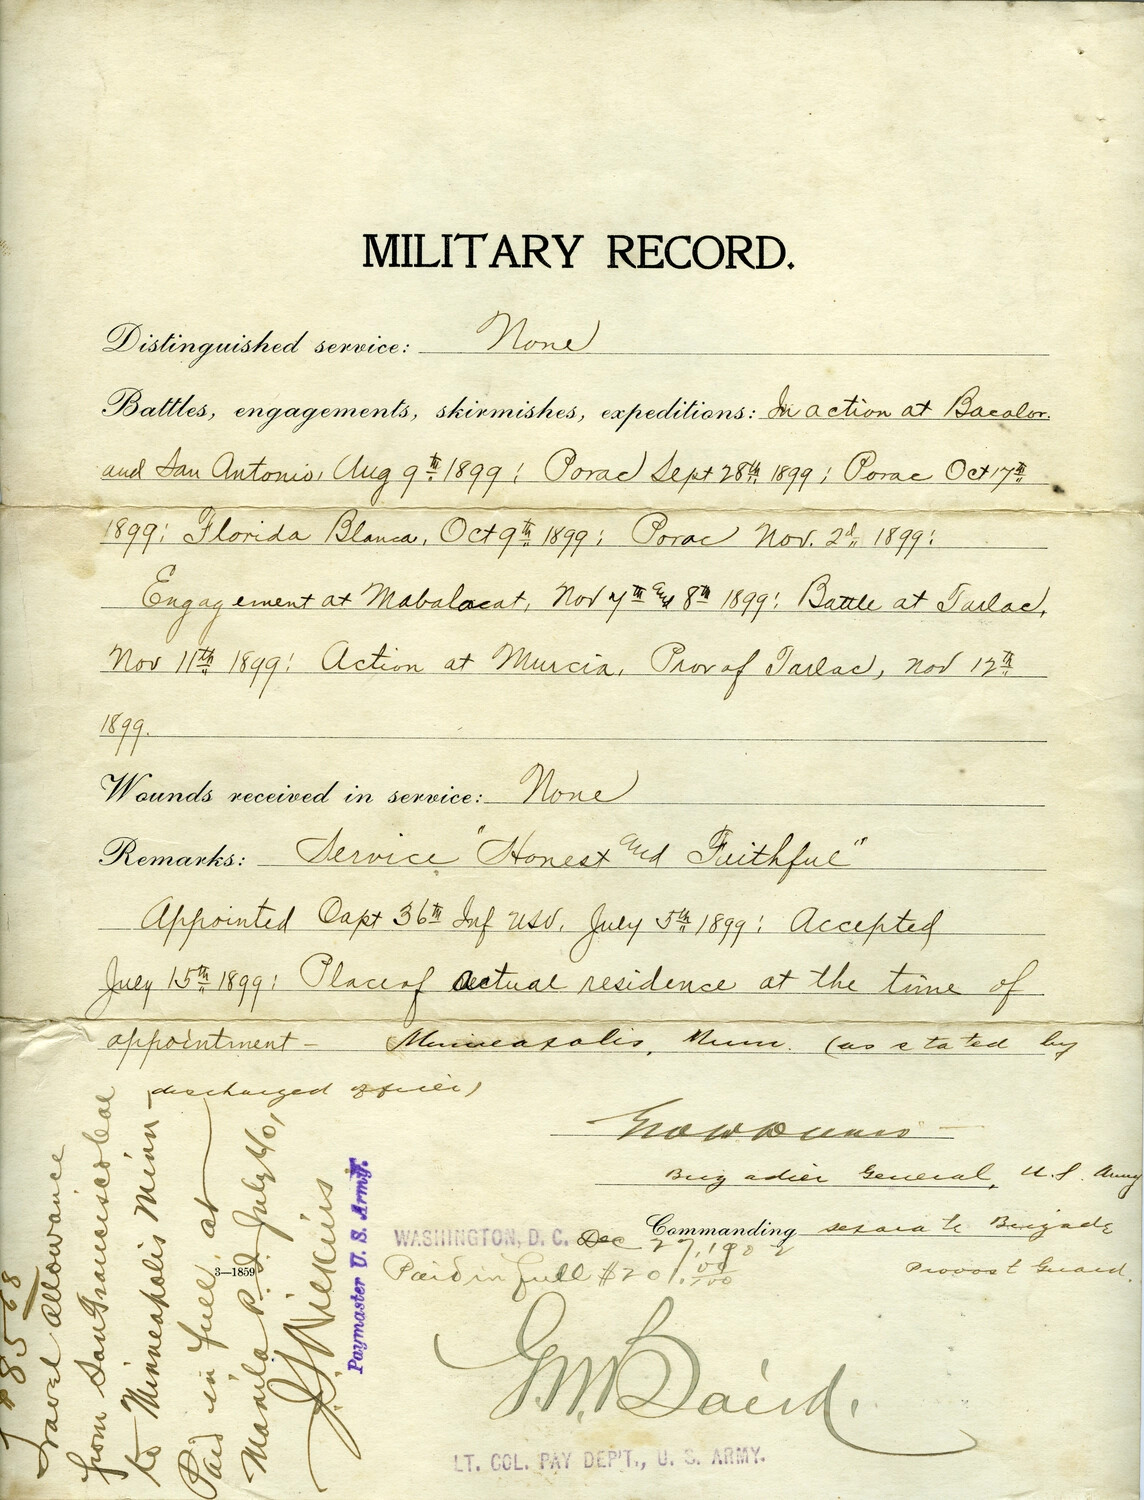 MILITARY RECORD.
Distinguished service: None
Battles, engagements, skirmishes, expeditions: In action at Bacolor
and San Antonio, Aug 9th 1899; Porac Sept 28th 1899; Porac Oct 17th
1899; Florida Blanca, Oct 9th 1899; Porac Nov. 2d 1899;
Engagement at Mabalacat, Nov 7th and 8th 1899; Battle at Tarlac,
Nov 11th 1899; Action at Murcia, Prov of Tarlac, Nov 17th
1899.
Wounds received in service: None
Remarks: Service "Honest and Faithful"
Appointed Capt 36th Inf USV. July 5th 1899; Accepted
July 15th 1899; Place of actual residence at the time of
appointment - Minneapolis, Minn. (as stated by
discharged officer)
Brigadier General, U.S. Army
Commanding separate Brigade
Provost Guard.
WASHINGTON, D. C. Dec 27, 1902
Paid in full $201.00/100
G.W. Baird.
LT. COL. PAY DEP'T., U. S. ARMY.
3-1859
Travel allowance
from San Francisco Cal
to Minneapolis Minn
Paid in full at
Manila P.I. July
J. Wilkins
Paymaster U. S. Army.